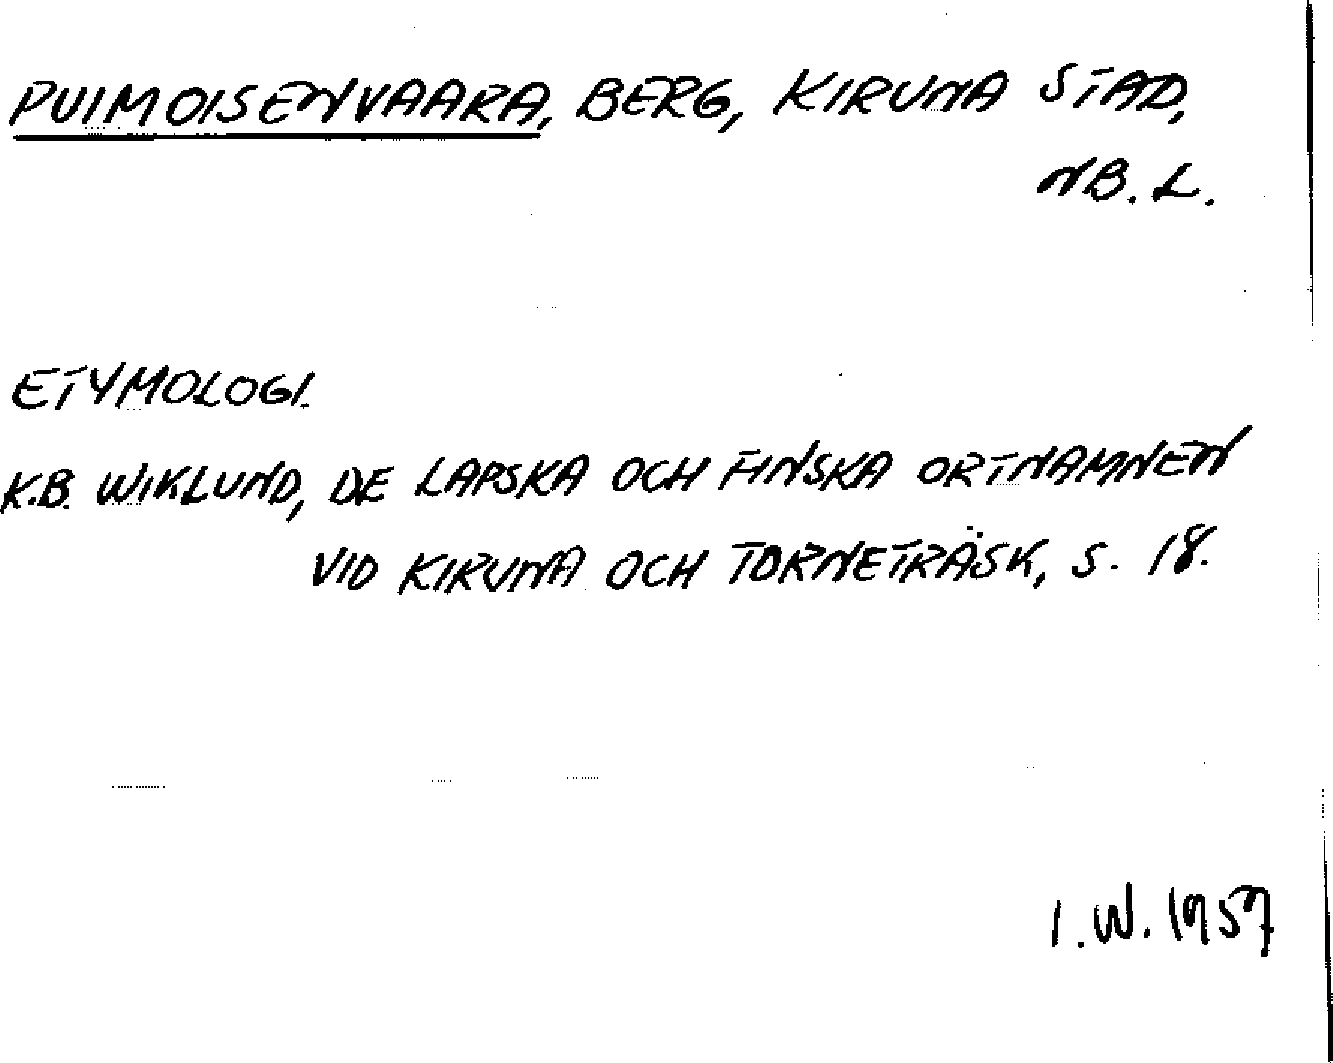 PUIMOISENVAARA, BERG, KIRUNA STAD,
NB. L.
ETYMOLOGI.
K.B. WIKLUND, DE LAPSKA OCH FINSKA ORTNAMNEN
VID KIRUNA OCH TORNETRÄSK, S. 18.
I.W. 1957